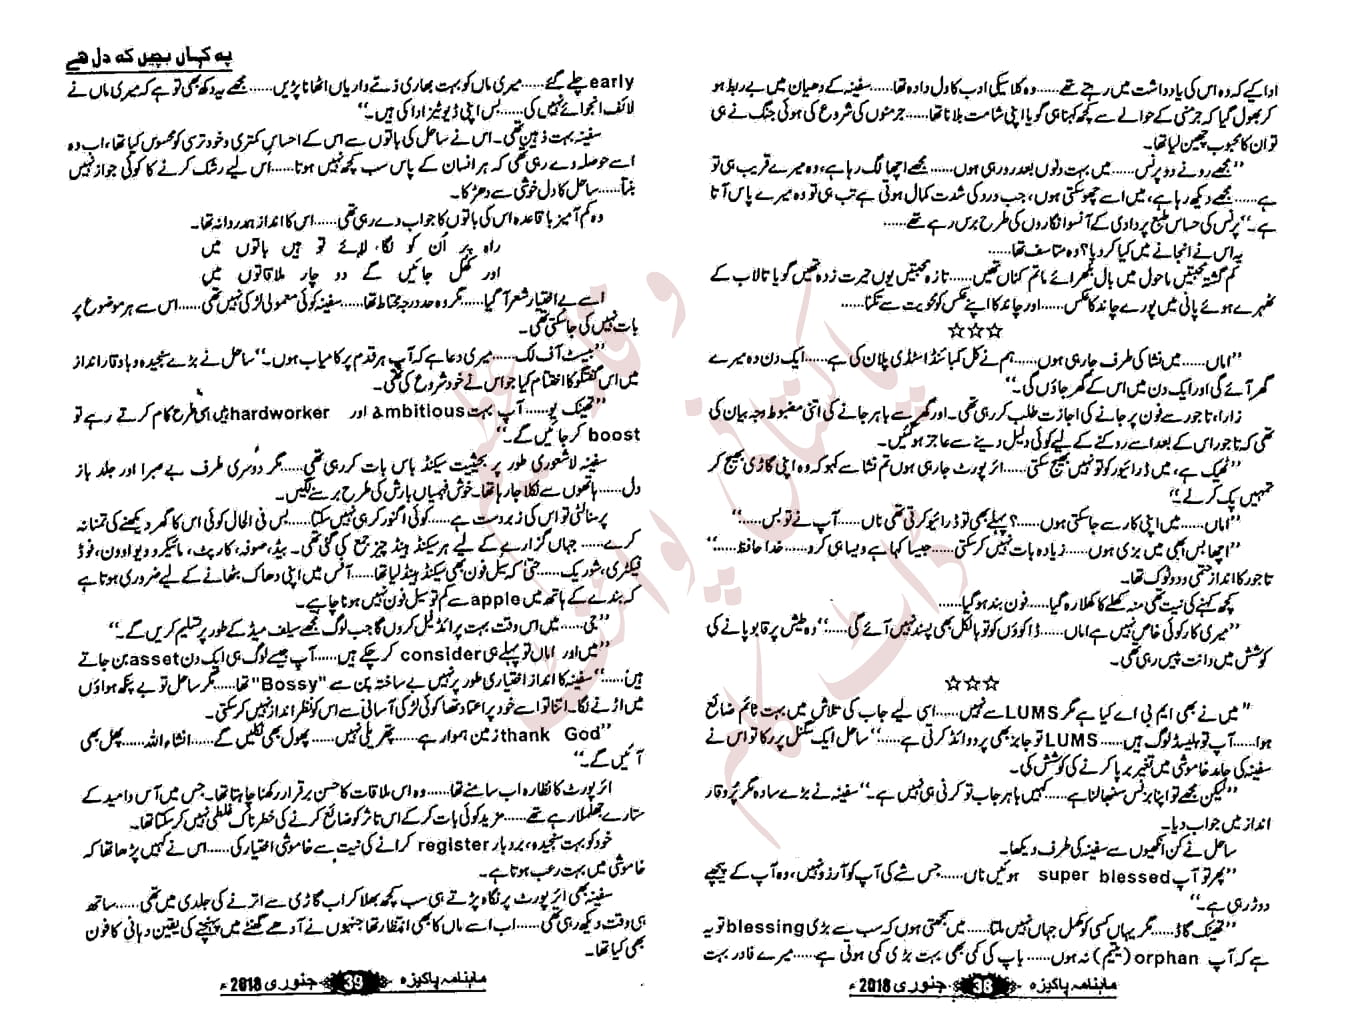 ادا کیے کہ وہ اس کی یادداشت میں رچے تھے......وہ کلاسیکی ادب کا دل دادہ تھا......سفینہ کے دھیان میں بے ربط ہو
کر بھول گیا کہ جرمنی کے حوالے سے کچھ کہنا ہی گویا اپنی شامت بلانا تھا......جرمنوں کی شروع کی ہوئی جنگ نے ہی
تو ان کا محبوب چھین لیا تھا۔
”مجھے رونے دو پرنس......میں بہت دنوں بعد رو رہی ہوں......مجھے اچھا لگ رہا ہے، وہ میرے قریب ہی تو
ہے......مجھے دیکھ رہا ہے، میں اسے چھو سکتی ہوں، جب درد کی شدت کمال ہوتی ہے تب ہی تو وہ میرے پاس آتا
ہے۔“ پرنس کی حساس طبع پر دادی کے آنسو انگاروں کی طرح برس رہے تھے......
یہ اس نے انجانے میں کیا کر دیا؟ وہ متاسف تھا......
گم گشتہ محبتیں ماحول میں بال بکھرائے ماتم کناں تھیں......تازہ محبتیں یوں حیرت زدہ تھیں گویا تالاب کے
ٹھہرے ہوئے پانی میں پورے چاند کا عکس......اور چاند کا اپنے عکس کو محویت سے تکنا......
☆☆☆
”اماں......میں نشا کی طرف جا رہی ہوں......ہم نے کل کمبائنڈ اسٹڈی پلان کی ہے......ایک دن وہ میرے
گھر آئے گی اور ایک دن میں اس کے گھر جاؤں گی۔“
زارا، تاجور سے فون پر جانے کی اجازت طلب کر رہی تھی۔ اور گھر سے باہر جانے کی اتنی مضبوط وجہ بیان کی
تھی کہ تاجور اس کے بعد اسے روکنے کے لیے کوئی دلیل دینے سے عاجز ہو گئیں۔
”ٹھیک ہے، میں ڈرائیور کو تو نہیں بھیج سکتی......ائرپورٹ جا رہی ہوں تم نشا سے کہو کہ وہ اپنی گاڑی بھیج کر
تمہیں پک کر لے۔“
”اماں......میں اپنی کار سے جا سکتی ہوں......؟ پہلے بھی تو ڈرائیو کرتی تھی ناں......آپ نے تو بس......“
”اچھا بس ابھی میں بزی ہوں......زیادہ بات نہیں کر سکتی......جیسا کہا ہے ویسا ہی کرو......خدا حافظ......“
تاجور کا انداز حتمی و دو ٹوک تھا۔
کچھ کہنے کی نیت تھی منہ کھلے کا کھلا رہ گیا......فون بند ہو گیا......
”میری کار کوئی خاص نہیں ہے اماں......ڈاکوؤں کو تو بالکل بھی پسند نہیں آئے گی......“ وہ طیش پر قابو پانے کی
کوشش میں دانت پیس رہی تھی۔
☆☆☆
"میں نے بھی ایم بی اے کیا ہے مگر LUMS سے نہیں......اسی لیے جاب کی تلاش میں بہت ٹائم ضائع
ہوا......آپ تو بلیسڈ لوگ ہیں......LUMS تو جابز بھی پرووائڈ کرتی ہے......“ ساحل ایک سگنل پر رکا تو اس نے
سفینہ کی جامد خاموشی میں تغیر برپا کرنے کی کوشش کی۔
”لیکن مجھے تو اپنا بزنس سنبھالنا ہے......کہیں باہر جاب تو کرنی ہی نہیں ہے۔“ سفینہ نے بڑے سادہ مگر پُروقار
انداز میں جواب دیا۔
ساحل نے کن انکھیوں سے سفینہ کی طرف دیکھا۔
”پھر تو آپ super blessed ہوئیں ناں......جس شے کی آپ کو آرزو نہیں، وہ آپ کے پیچھے
دوڑ رہی ہے۔“
”تھینک گاڈ......مگر یہاں کسی کو مکمل جہاں نہیں ملتا......میں سمجھتی ہوں کہ سب سے بڑی blessing تو یہ
ہے کہ آپ orphan (یتیم) نہ ہوں......باپ کی کمی بھی بہت بڑی کمی ہوتی ہے......میرے فادر بہت
ماہنامہ پاکیزہ 38 جنوری 2018ء
یہ کہاں بچیں کہ دل ہے
early چلے گئے......میری ماں کو بہت بھاری ذمے داریاں اٹھانا پڑیں......مجھے یہ دکھ بھی تو ہے کہ میری ماں نے
لائف انجوائے نہیں کی......بس اپنی ڈیوٹیز ادا کی ہیں۔“
سفینہ بہت ذہین تھی۔ اس نے ساحل کی باتوں سے اس کے احساس کمتری و خود ترسی کو محسوس کیا تھا، اب وہ
اسے حوصلہ دے رہی تھی کہ ہر انسان کے پاس سب کچھ نہیں ہوتا......اس لیے رشک کرنے کا کوئی جواز نہیں
بنتا......ساحل کا دل خوشی سے دھڑکا۔
وہ کم آمیز باقاعدہ اس کی باتوں کا جواب دے رہی تھی......اس کا انداز ہمدردانہ تھا۔
راہ پر اُن کو لگا لائے تو ہیں باتوں میں
اور کھل جائیں گے دو چار ملاقاتوں میں
اسے بے اختیار شعر آ گیا......مگر وہ حد درجہ محتاط تھا......سفینہ کوئی معمولی لڑکی نہیں تھی......اس سے ہر موضوع پر
بات نہیں کی جا سکتی تھی۔
”بیسٹ آف لک......میری دعا ہے کہ آپ ہر قدم پر کامیاب ہوں۔“ ساحل نے بڑے سنجیدہ و باوقار انداز
میں اس گفتگو کا اختتام کیا جو اس نے خود شروع کی تھی۔
”تھینک یو......آپ بہت ambitious اور hardworker ہیں اسی طرح کام کرتے رہے تو
boost کر جائیں گے۔“
سفینہ لاشعوری طور پر بحیثیت سیکنڈ باس بات کر رہی تھی......مگر دوسری طرف بے صبرا اور جلد باز
دل......ہاتھوں سے نکلا جا رہا تھا۔ خوش فہمیاں بارش کی طرح برسنے لگیں۔
پرسنالٹی تو اس کی زبردست ہے......کوئی اگنور کر ہی نہیں سکتا......بس فی الحال کوئی اس کا گھر دیکھنے کی تمنا نہ
کرے......جہاں گزارے کے لیے ہر سیکنڈ ہینڈ چیز جمع کی گئی تھی۔ بیڈ، صوفہ، کارپٹ، مائیکرو ویو اوون، فوڈ
فیکٹری، شو ریک......حتیٰ کہ سیل فون بھی سیکنڈ ہینڈ لیا تھا......آفس میں اپنی دھاک بٹھانے کے لیے ضروری ہوتا ہے
کہ بندے کے ہاتھ میں apple سے کم تو سیل فون نہیں ہونا چاہیے۔
”جی......میں اس وقت بہت پرائڈ فیل کروں گا جب لوگ مجھے سیلف میڈ کے طور پر تسلیم کریں گے۔“
”میں اور اماں تو پہلے ہی consider کر چکے ہیں......آپ جیسے لوگ ہی ایک دن asset بن جاتے
ہیں......“ سفینہ کا انداز اختیاری طور پر نہیں بے ساختہ پن سے "Bossy" تھا......مگر ساحل تو بے پنکھ ہواؤں
میں اڑنے لگا۔ اتنا تو اسے خود پر اعتماد تھا کوئی لڑکی آسانی سے اس کو نظر انداز نہیں کر سکتی۔
”thank God زمین ہموار ہے......پتھریلی نہیں......پھول بھی نکلیں گے......انشاء اللہ......پھل بھی
آئیں گے۔“
ائرپورٹ کا نظارہ اب سامنے تھا......وہ اس ملاقات کا حسن برقرار رکھنا چاہتا تھا۔ جس میں آس و امید کے
ستارے جھلملا رہے تھے......مزید کوئی بات کر کے اس تاثر کو ضائع کرنے کی خطرناک غلطی نہیں کر سکتا تھا۔
خود کو بہت سنجیدہ، بردبار register کرانے کی نیت سے خاموشی اختیار کی......اس نے کہیں پڑھا تھا کہ
خاموشی میں بہت رعب ہوتا ہے۔
سفینہ بھی ائرپورٹ پر نگاہ پڑتے ہی سب کچھ بھلا کر اب گاڑی سے اترنے کی جلدی میں تھی......ساتھ
ہی وقت دیکھ رہی تھی......اب اسے ماں کا بھی انتظار تھا جنہوں نے آدھے گھنٹے میں پہنچنے کی یقین دہانی کا فون
بھی کیا تھا۔
ماہنامہ پاکیزہ 39 جنوری 2018ء